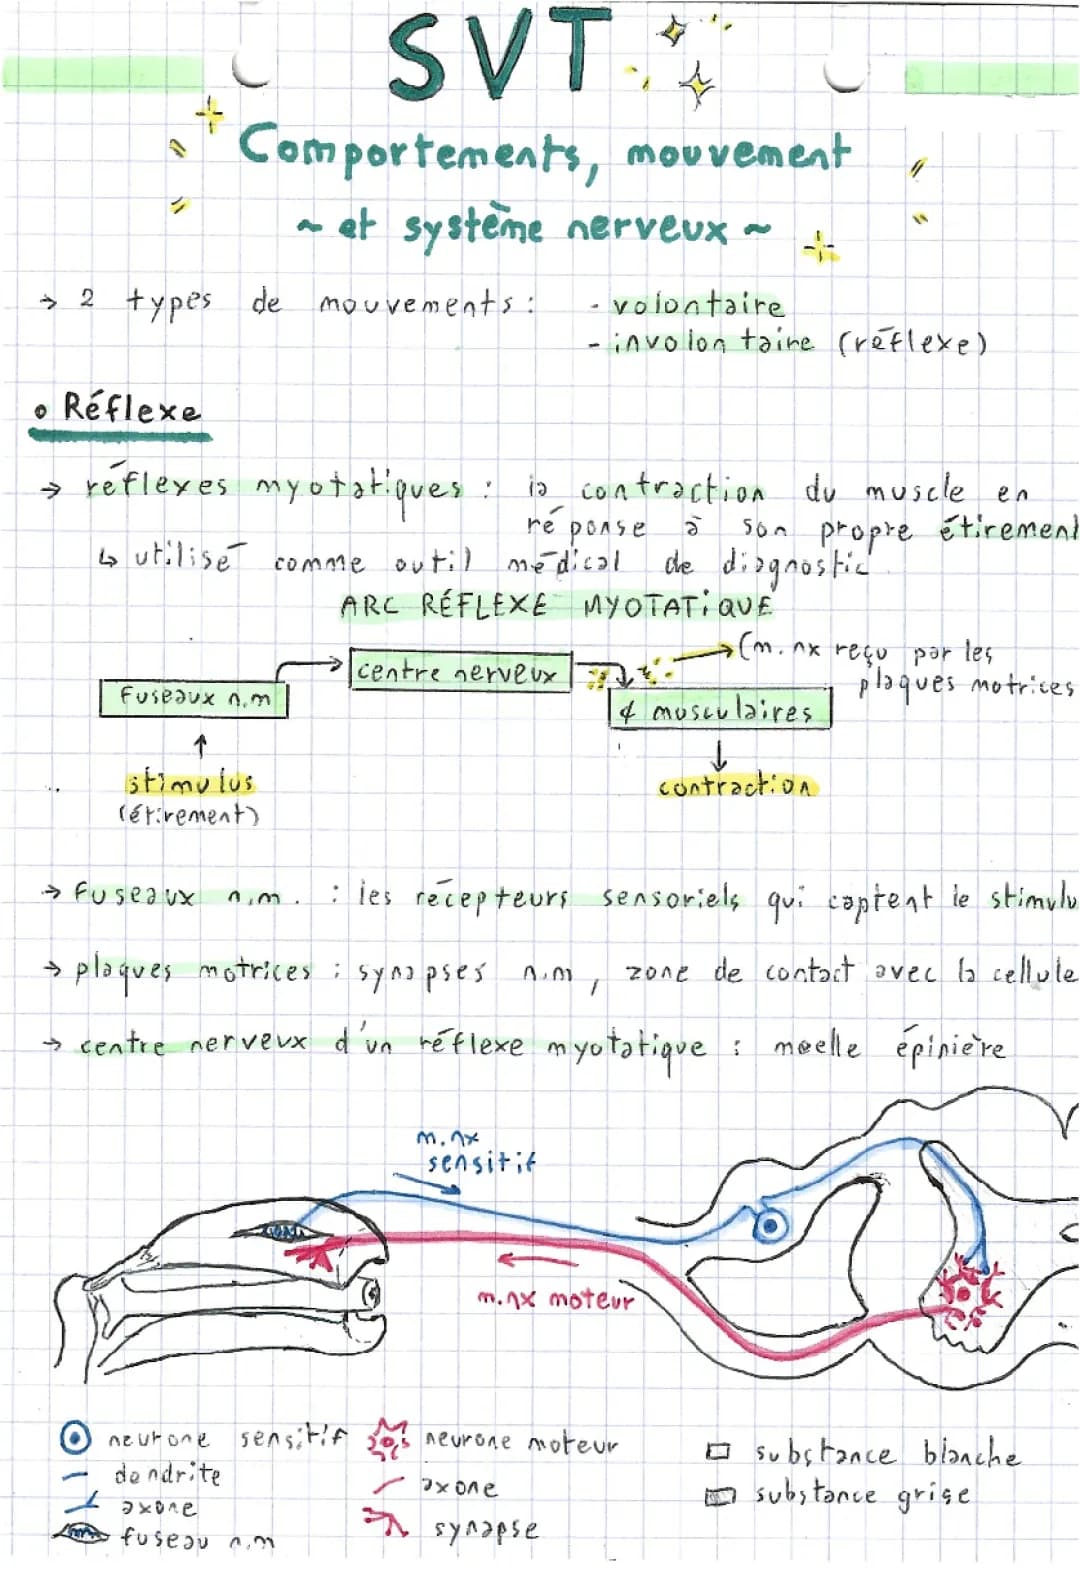 SVT
Comportements, mouvement
~ et système nerveux ~
→ 2 types de mouvements : - volontaire
- involontaire (réflexe)
• Réflexe
→ réflexes myotatiques : la contraction du muscle en
réponse à son propre étirement
↳ utilisé comme outil médical de diagnostic
ARC RÉFLEXE MYOTATIQUE
(m. nx reçu par les
plaques motrices
centre nerveux
Fuseaux n.m
musculaires
stimulus
(étirement)
contraction
→ fuseaux n.m. : les récepteurs sensoriels qui captent le stimulu
→ plaques motrices : synapses n.m, zone de contact avec la cellule
→ centre nerveux d'un réflexe myotatique : moelle épinière
m. nx
sensitif
m. nx moteur
neurone sensitif
dendrite
axone
fuseau n.m
neurone moteur
axone
synapse
substance blanche
substance grise